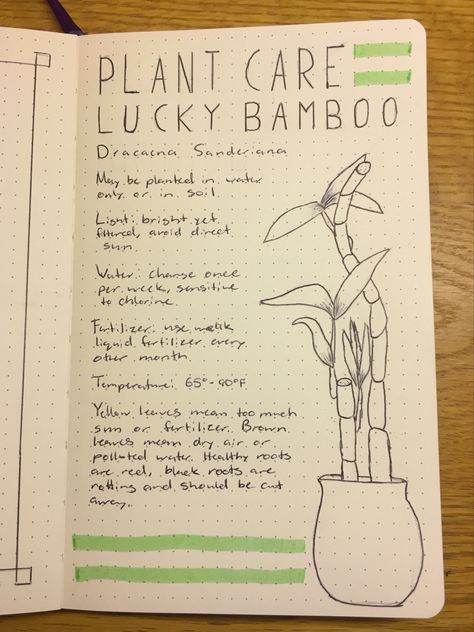 PLANT CARE
LUCKY BAMBOO
Dracaena Sanderiana
May be planted in water
only or in soil
Light: bright yet
filtered, avoid direct
sun
Water: change once
per week, sensitive
to chlorine
Fertilizer: use weak
liquid fertilizer every
other month
Temperature: 65°-90°F
Yellow leaves mean too much
sun or fertilizer. Brown
leaves mean dry air or
polluted water. Healthy roots
are red, black roots are
rotting and should be cut
away.